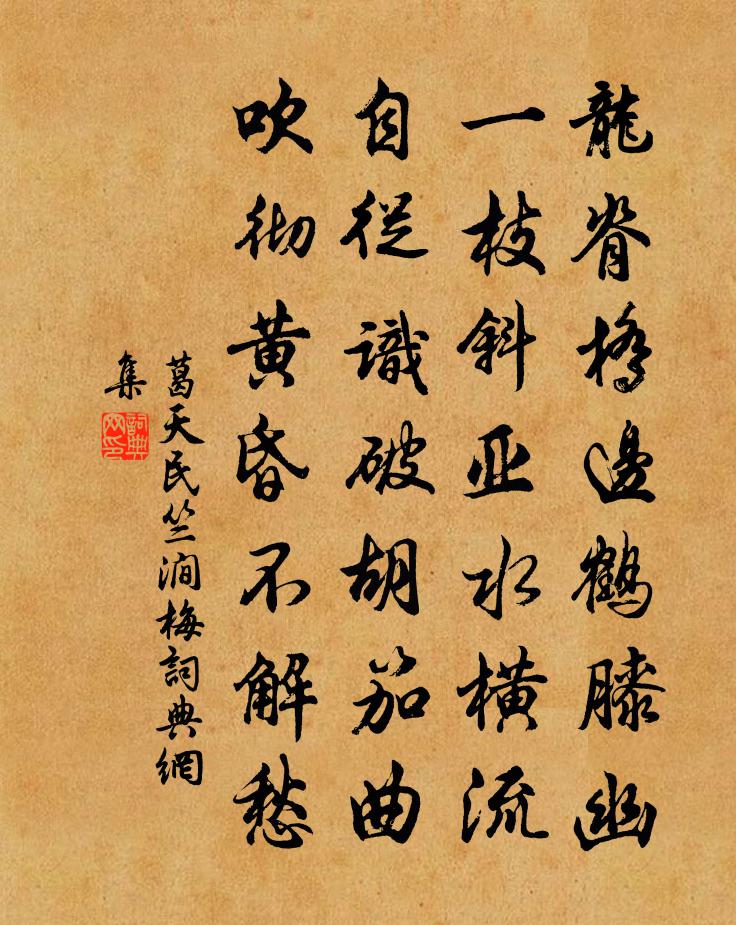 龍脊橋邊鶴膝幽
一枝斜亚水橫流
自從識破胡笳曲
吹彻黄昏不解愁
葛天民竺澗梅詞典網
集
詞典網印